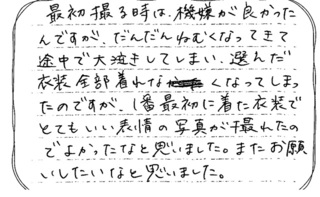 最初撮る時は、機嫌が良かった
んですが、だんだんねむくなってきて
途中で大泣きしてしまい、選んだ
衣装全部着れなくなってしまっ
たのですが、1番最初に着た衣装で
とてもいい表情の写真が撮れたの
でよかったなと思いました。またお願
いしたいなと思いました。